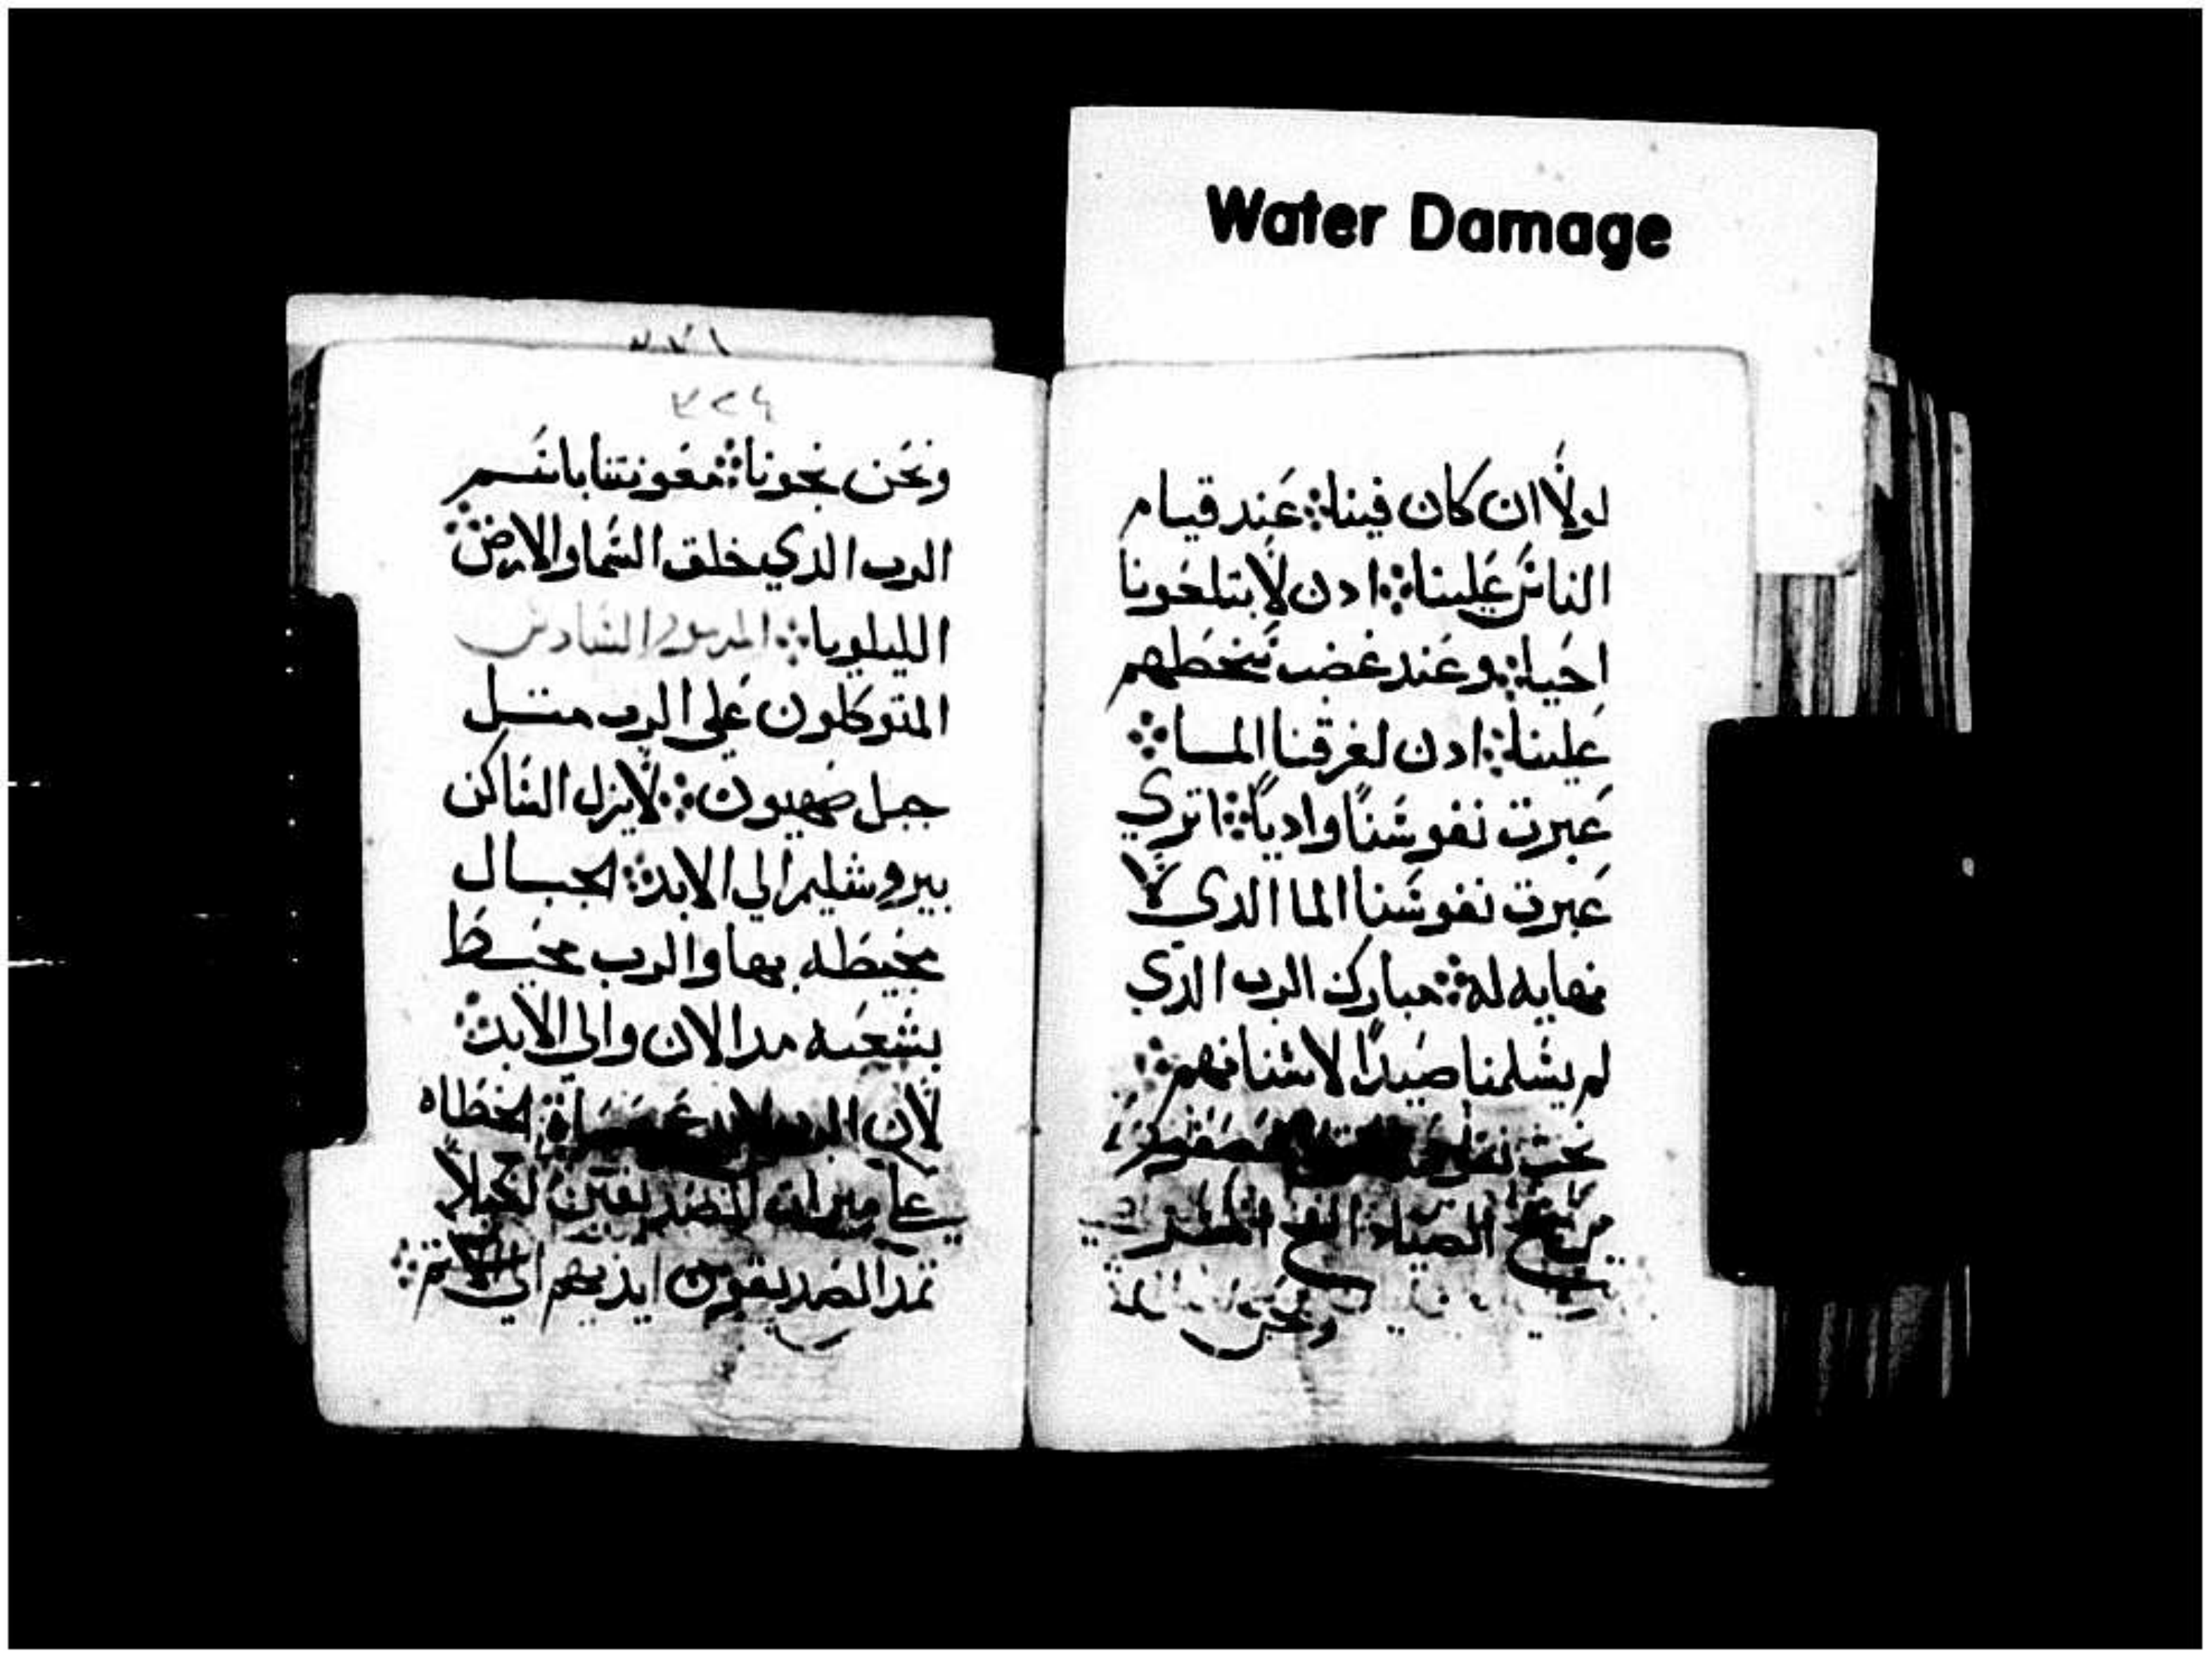 Water Damage
لولا ان كان فينا ❖ عند قيام
الناس علينا ❖ ادن لابتلعونا
احيا ❖ وعند غضب سخطهم
علينا ❖ ادن لغرقنا المـا ❖
عبرت نفوسنا واديا ❖ اتري
عبرت نفوسنا الما الدي لا
نهايه له ❖ مبارك الرب الدي
لم يسلمنا صيدًا لاسنانهم ❖
نجت
الصياد الفخ
ونحن
٣٢٤
ونحن نجونا ❖ معونتنا باسـم
الرب الدي خلق السما والارض ❖
الليلويا ❖ المزمور السادس
المتوكلون علي الرب متـل
جبل صهيون ❖ لا يزل الساكن
بيروشليم الي الابد ❖ الجبـال
محيطه بها والرب محيـط
بشعبه مد الان والي الابد ❖
لان الرب عصاة الخطاه
علي ميرات الصديقين لكيلا
تمد الصديقون ايديهم الي الاتم ❖